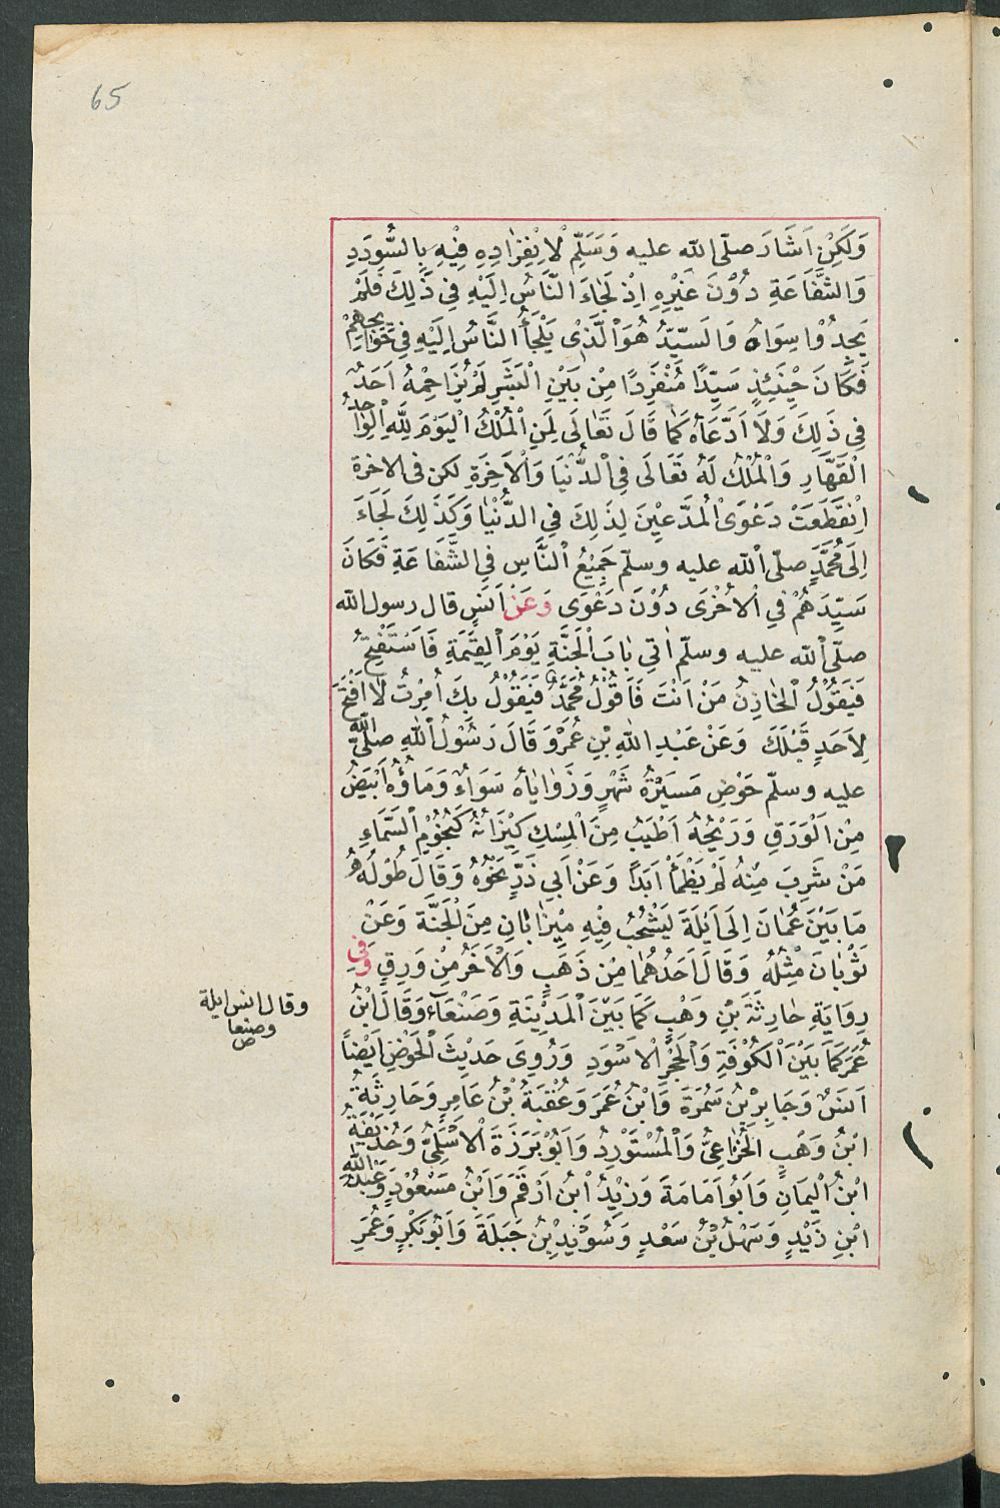 65
وَلَكِنْ اَشَارَ صلّى الله عليه وَسَلَّمِ لِاِنْفِرَادِهِ فِيْهِ بِالسُّودَدِ
وَالشَّفَاعَةِ دُوْنَ غَيْرِهِ اِذْ لَجَاءَ النَّاسُ اِلَيْهِ فِي ذَلِكَ فَلَمْ
يَجِدُوْا سِوَاهُ وَالسَّيِّدُ هُوَ الَّذِىْ يَلْجَأُ النَّاسُ اِلَيْهِ فِي حَوَايِجِهِمْ
فَكَانَ حِيْنَئِذٍ سَيِّدًا مُنْفَرِدًا مِنْ بَيْنِ الْبَشَرِ لَمْ يُزَاحِمْهُ اَحَدٌ
فِي ذَلِكَ وَلَا ادَّعَاهُ كَمَا قَالَ تَعَالَى لِمَنِ الْمُلْكُ الْيَوْمَ لِلَّهِ الْوَاحِدِ
الْقَهَّارِ وَالْمُلْكُ لَهُ تَعَالَى فِي الدُّنْيَا وَالْاَخِرَةِ لكن فى الاخرة
اِنْقَطَعَتْ دَعْوَى الْمُدَّعِيْنَ لِذَلِكَ فِي الدُّنْيَا وَكَذَلِكَ لَجَاءَ
اِلَى مُحَمَّدٍ صلّى الله عليه وسلّم جَمِيْعُ النَّاسِ فِي الشَّفَاعَةِ فَكَانَ
سَيِّدَهُمْ فِي الْاُخْرَى دُوْنَ دَعْوَى وَعَنْ اَنَسٍ قال رسول الله
صلّى الله عليه وسلّم اٰتِي بَابَ الْجَنَّةِ يَوْمَ الْقِيٰمَةِ فَاَسْتَفْتِحُ
فَيَقُوْلُ الْخَازِنُ مَنْ اَنْتَ فَاَقُوْلُ مُحَمَّدٌ فَيَقُوْلُ بِكَ اُمِرْتُ لَا اَفْتَحَ
لِاَحَدٍ قَبْلَكَ وَعَنْ عَبْدِ اللهِ بْنِ عُمَرْوَ قَالَ رَسُوْلُ اللهِ صلى الله
عليه وسلّم حَوْضِ مَسِيْرَةُ شَهْرٍ وَزَوَايَاهُ سَوَاءٌ وَمَاؤُهُ اَبْيَضُ
مِنَ الْوَرَقِ وَرِيْحُهُ اَطْيَبُ مِنَ الْمِسْكِ كِيْزَانُهُ كَنُجُوْمِ السَّمَاءِ
مَنْ شَرِبَ مِنْهُ لَمْ يَظْمَأْ اَبَدًا وَعَنْ اَبِي ذَرٍّ نَحْوُهُ وَقَالَ طُوْلُهُ
مَا بَيْنَ عُمَانَ اِلَى اَيْلَةَ يَشْخُبُ فِيْهِ مِيْزَابَانِ مِنَ الْجَنَّةِ وَعَنْ
ثَوْبَانَ مِثْلُهُ وَقَالَ اَحَدُهُمَا مِنْ ذَهَبٍ وَالْاَخَرُ مِنْ وَرِقٍ وَفِي
رِوَايَةِ حَارِثَةَ بْنِ وَهْبٍ كَمَا بَيْنَ الْمَدِيْنَةِ وَصَنْعَاءَ وَقَالَ ابْنُ
عُمَرَ كَمَا بَيْنَ الْكُوْفَةِ وَالْحَجَرِ الْاَسْوَدِ وَرُوِىَ حَدِيْثَ الْحَوْضِ اَيْضاً
اَنَسٌ وَجَابِرِ بْنُ سَمُرَةَ وَابْنُ عُمَرَ وَعُقْبَةُ بْنُ عَامِرٍ وَحَارِثَةُ
ابْنُ وَهْبٍ الْخُزَاعِىُّ وَالْمُسْتَوْرِدُ وَاَبُوْ بَرَزَةَ الْاَسْلَمِىُّ وَحُذَيْفَةُ
ابْنُ الْيَمَانِ وَاَبُوا مَامَةَ وَزَيْدُ ابْنُ اَرْقَمَ وَابْنُ مَسْعُوْدٍ وَعَبْدُ الله
ابْنِ زَيْدٍ وَسَهْلُ بْنُ سَعْدٍ وَسُوَيْدِ بْنُ جَبَلَةَ وَاَبُوْ بَكْرٍ وَعُمَرِ
وقال انس ايلة
وصنعا
ص